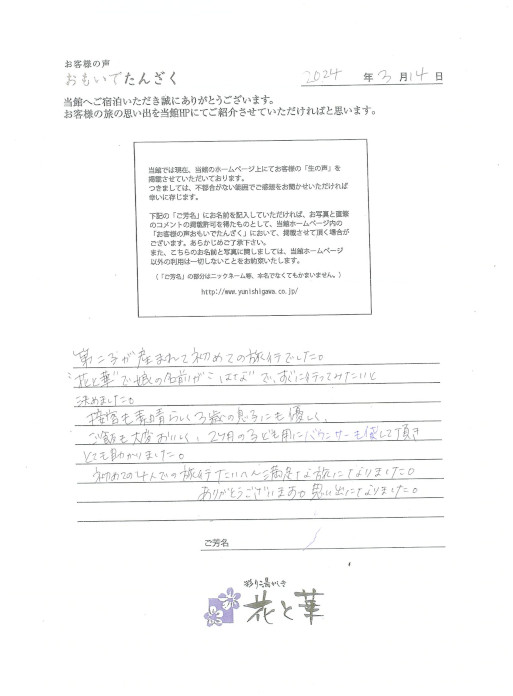 お客様の声
おもいでたんざく
2024 年 3 月 14 日
当館へご宿泊いただき誠にありがとうございます。
お客様の旅の思い出を当館HPにてご紹介させていただければと思います。
当館では現在、当館のホームページ上にてお客様の「生の声」を
掲載させていただいております。
つきましては、不都合がない範囲でご感想をお聞かせいただければ
幸いに存じます。
下記の「ご芳名」にお名前を記入していただければ、お写真と直筆
のコメントの掲載許可を得たものとして、当館ホームページ内の
「お客様の声おもいでたんざく」において、掲載させて頂く場合が
ございます。あらかじめご了承下さい。
また、こちらのお名前と写真に関しましては、当館ホームページ
以外の利用は一切しないことをお約束いたします。
（「ご芳名」の部分はニックネーム等、本名でなくてもかまいません。）
http://www.yunishigawa.co.jp/
第二子が産まれて初めての旅行でした。
"花と華"で娘の名前が"はな"で、すぐに行ってみたいと
決めました。
接客も素晴らしく3歳の息子にも優しく、
ご飯も大変おいしく、2ヶ月の子ども用にバウンサーも貸して頂き
とても助かりました。
初めての4人での旅行たいへん満足な旅になりました。
ありがとうございます。思い出になりました。
ご芳名
彩り湯かしき
花と華